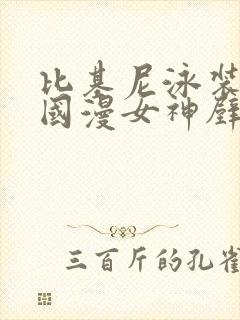 比基尼泳裝
國漫女神壁
三百斤的孔雀